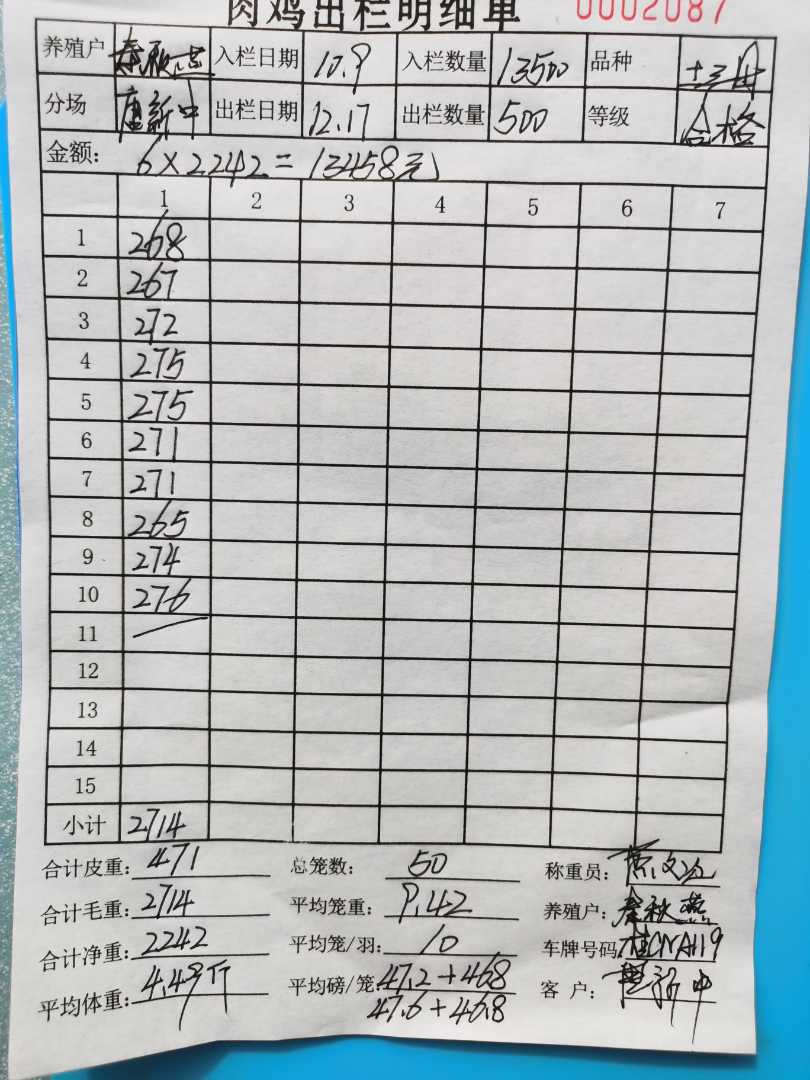 肉鸡出栏明细单 0002087
养殖户 秦秋燕 入栏日期 10.9 入栏数量 13500 品种
分场 唐新中 出栏日期 12.17 出栏数量 500 等级 合格
金额: 6×2242=13458元
1 2 3 4 5 6 7
1 268
2 267
3 272
4 275
5 275
6 271
7 271
8 265
9 274
10 276
11
12
13
14
15
小计 2714
合计皮重: 471 总笼数: 50 称重员:
合计毛重: 2714 平均笼重: 9.42 养殖户: 秦秋燕
合计净重: 2242 平均笼/羽: 10 车牌号码
平均体重: 4.49斤 平均磅/笼: 47.2+468 客户:
47.6+46.8